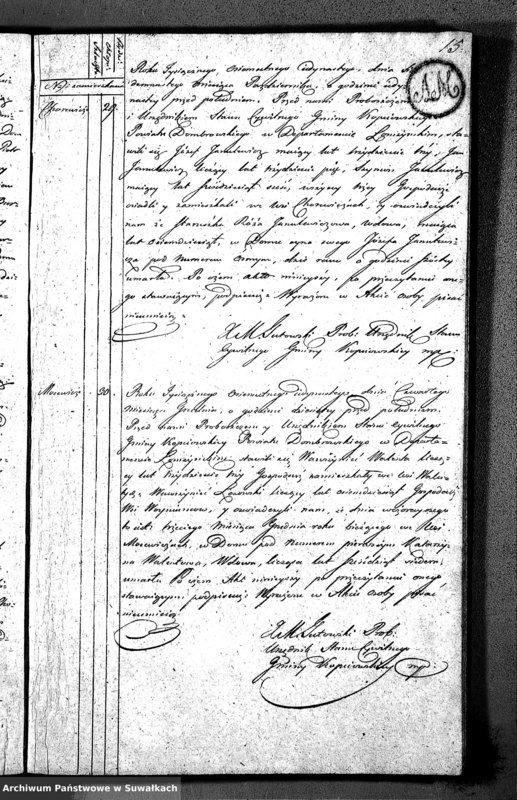 15
AM
Roku Tysiącznego Osiemsetnego Jedynastego, dnia
demnastego Miesiąca Października, o godzinie
nastey przed południem. Przed nami Proboszczem
i Urzędnikiem Stanu Cywilnego Gminy Kopciowskiey
Powiatu Dombrowskiego w Departamencie Łomżyńskim, sta-
wili się Józef Janulewicz maiący lat trzydzieści trzy, Jan
Janulewicz liczący lat trzydzieści pięć, Szymon Janulewicz
maiący lat pięćdziesiąt sieść, wszyscy trzey Gospodarze
osiedli y zamieszkali we Wsi y oświadczyli
nam że Róża Janulewiczowa, Wdowa, maiąca
lat osiemdziesiąt, w Domu syna swego Józefa Janulewi-
cza pod Numerem Osmym, dziś rano o godzinie szóstey
umarła. Po czem Akt ninieyszy, po przeczytaniu one-
go stawaiącym, podpisany. Wyrażone w Akcie osoby pisać
nieumieią.
X M Lutowski Prob. Urzędnik Stanu
Cywilnego Gminy Kopciowskiey mp:
Mocewicze 30.
Roku Tysiącznego Osiemsetnego Jedynastego dnia Czwartego
Miesiąca Grudnia, o godzinie dziewiątey przed południem.
Przed nami Proboszczem y Urzędnikiem Stanu Cywilnego
Gminy Kopciowskiey Powiatu Dombrowskiego w Departa-
mencie Łomżyńskim stawili się Wawrzyniec liczą-
cy lat trzydzieści trzy Gospodarz zamieszkały we Wsi
Wawrzyniec liczący lat osiemdziesiąt Gospodarz
Wsi y oświadczyli nam, iż dnia wczorayszego
to iest: trzeciego Miesiąca Grudnia roku bieżącego we Wsi
Mocewiczach, w Domu pod Numerem pierwszym Katarzy-
na Walentowa, Wdowa, licząca lat sześćdziesiąt siedem
umarła. Po czem Akt ninieyszy po przeczytaniu onego
stawaiącym, podpisany. Wyrażone w Akcie osoby pisać
nieumieią.
X M Lutowski Prob:
Urzędnik Stanu Cywilnego
Gminy Kopciowskiey mp:
Archiwum Państwowe w Suwałkach